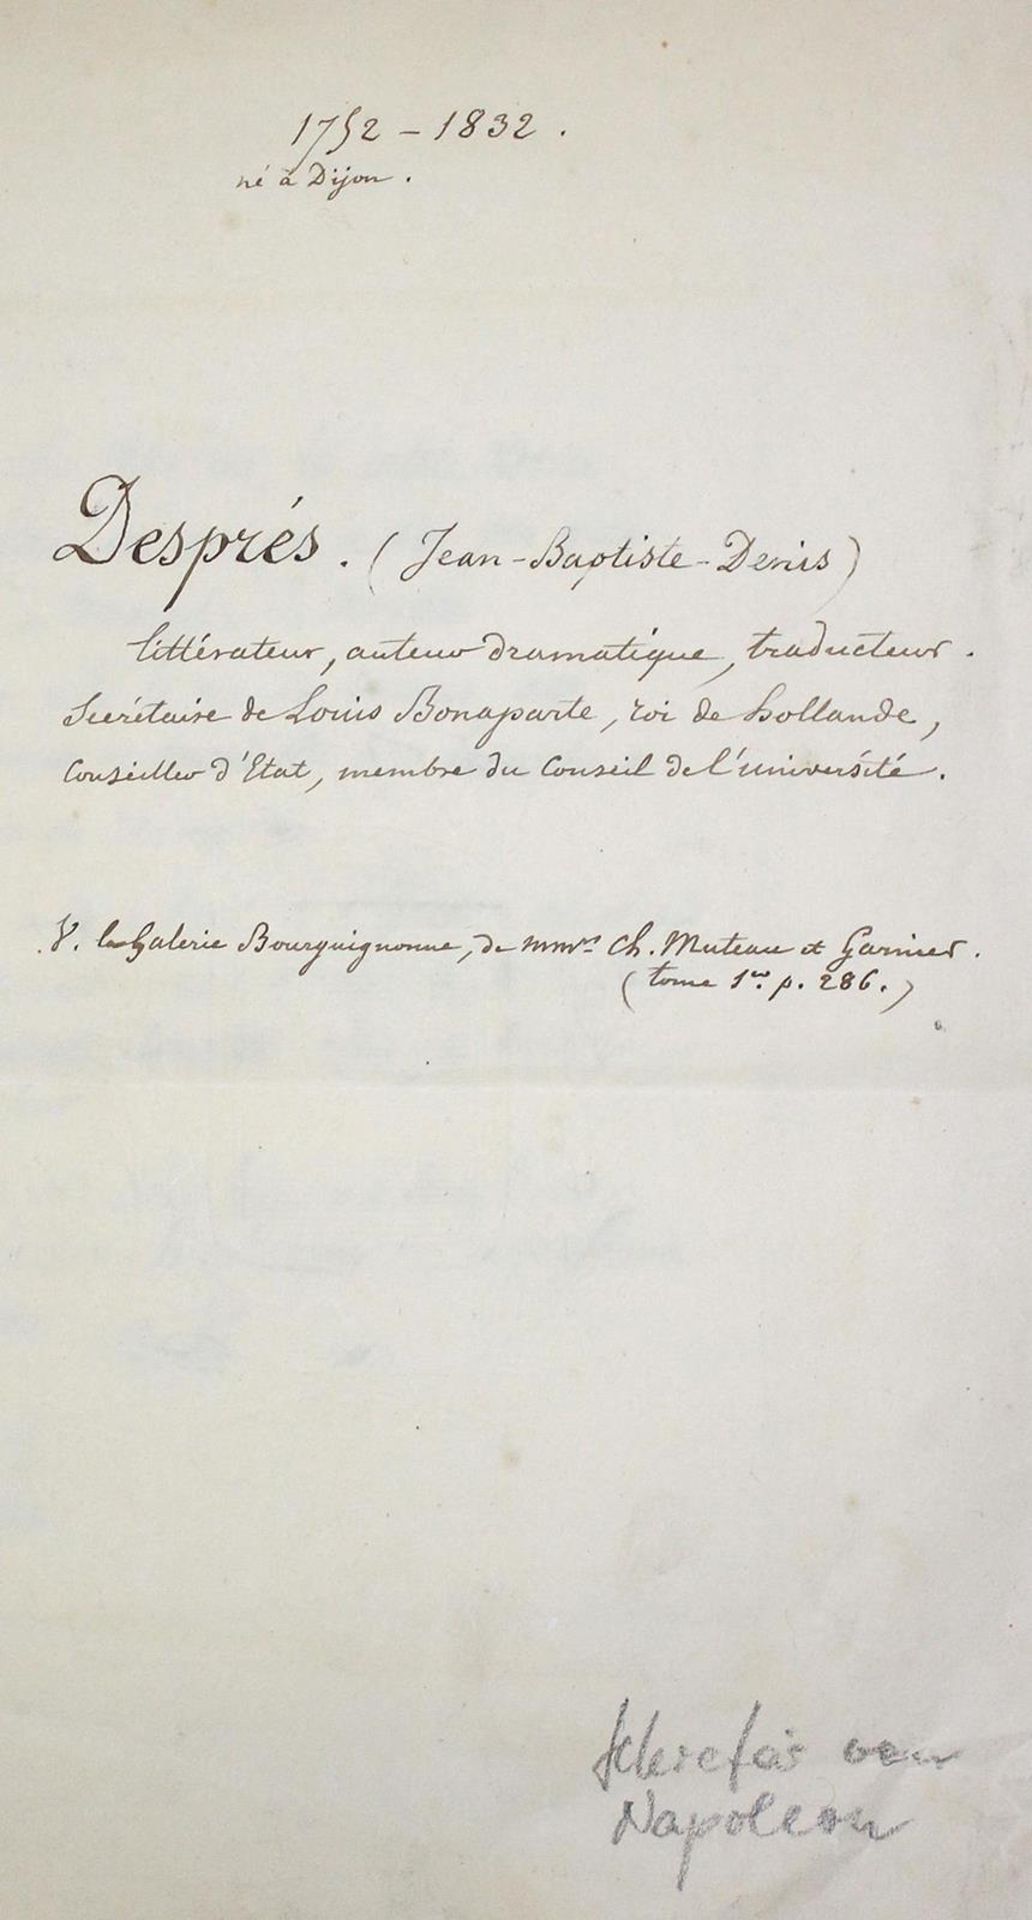 1752 – 1832 .
né à Dijon .
Després . ( Jean-Baptiste-Denis )
littérateur, auteur dramatique, traducteur .
Secrétaire de Louis Bonaparte, roi de hollande,
Conseiller d'Etat, membre du Conseil de l'université .
V. la Galerie Bourguignonne, de mmrs Ch. Muteau et Garnier .
( tome 1er. p. 286. )
von
Napoleon